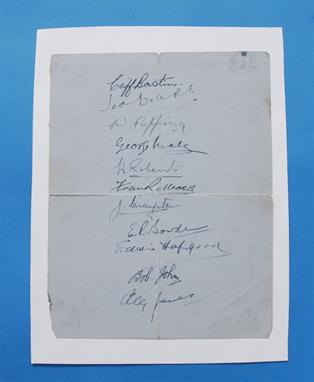 Cliff Bastin.
Ted Drake
W. Copping.
George Male
H. Roberts
Frank R Moss
J. Crayston
E.R. Bowden
Eddie Hapgood
Bob John
Alex James